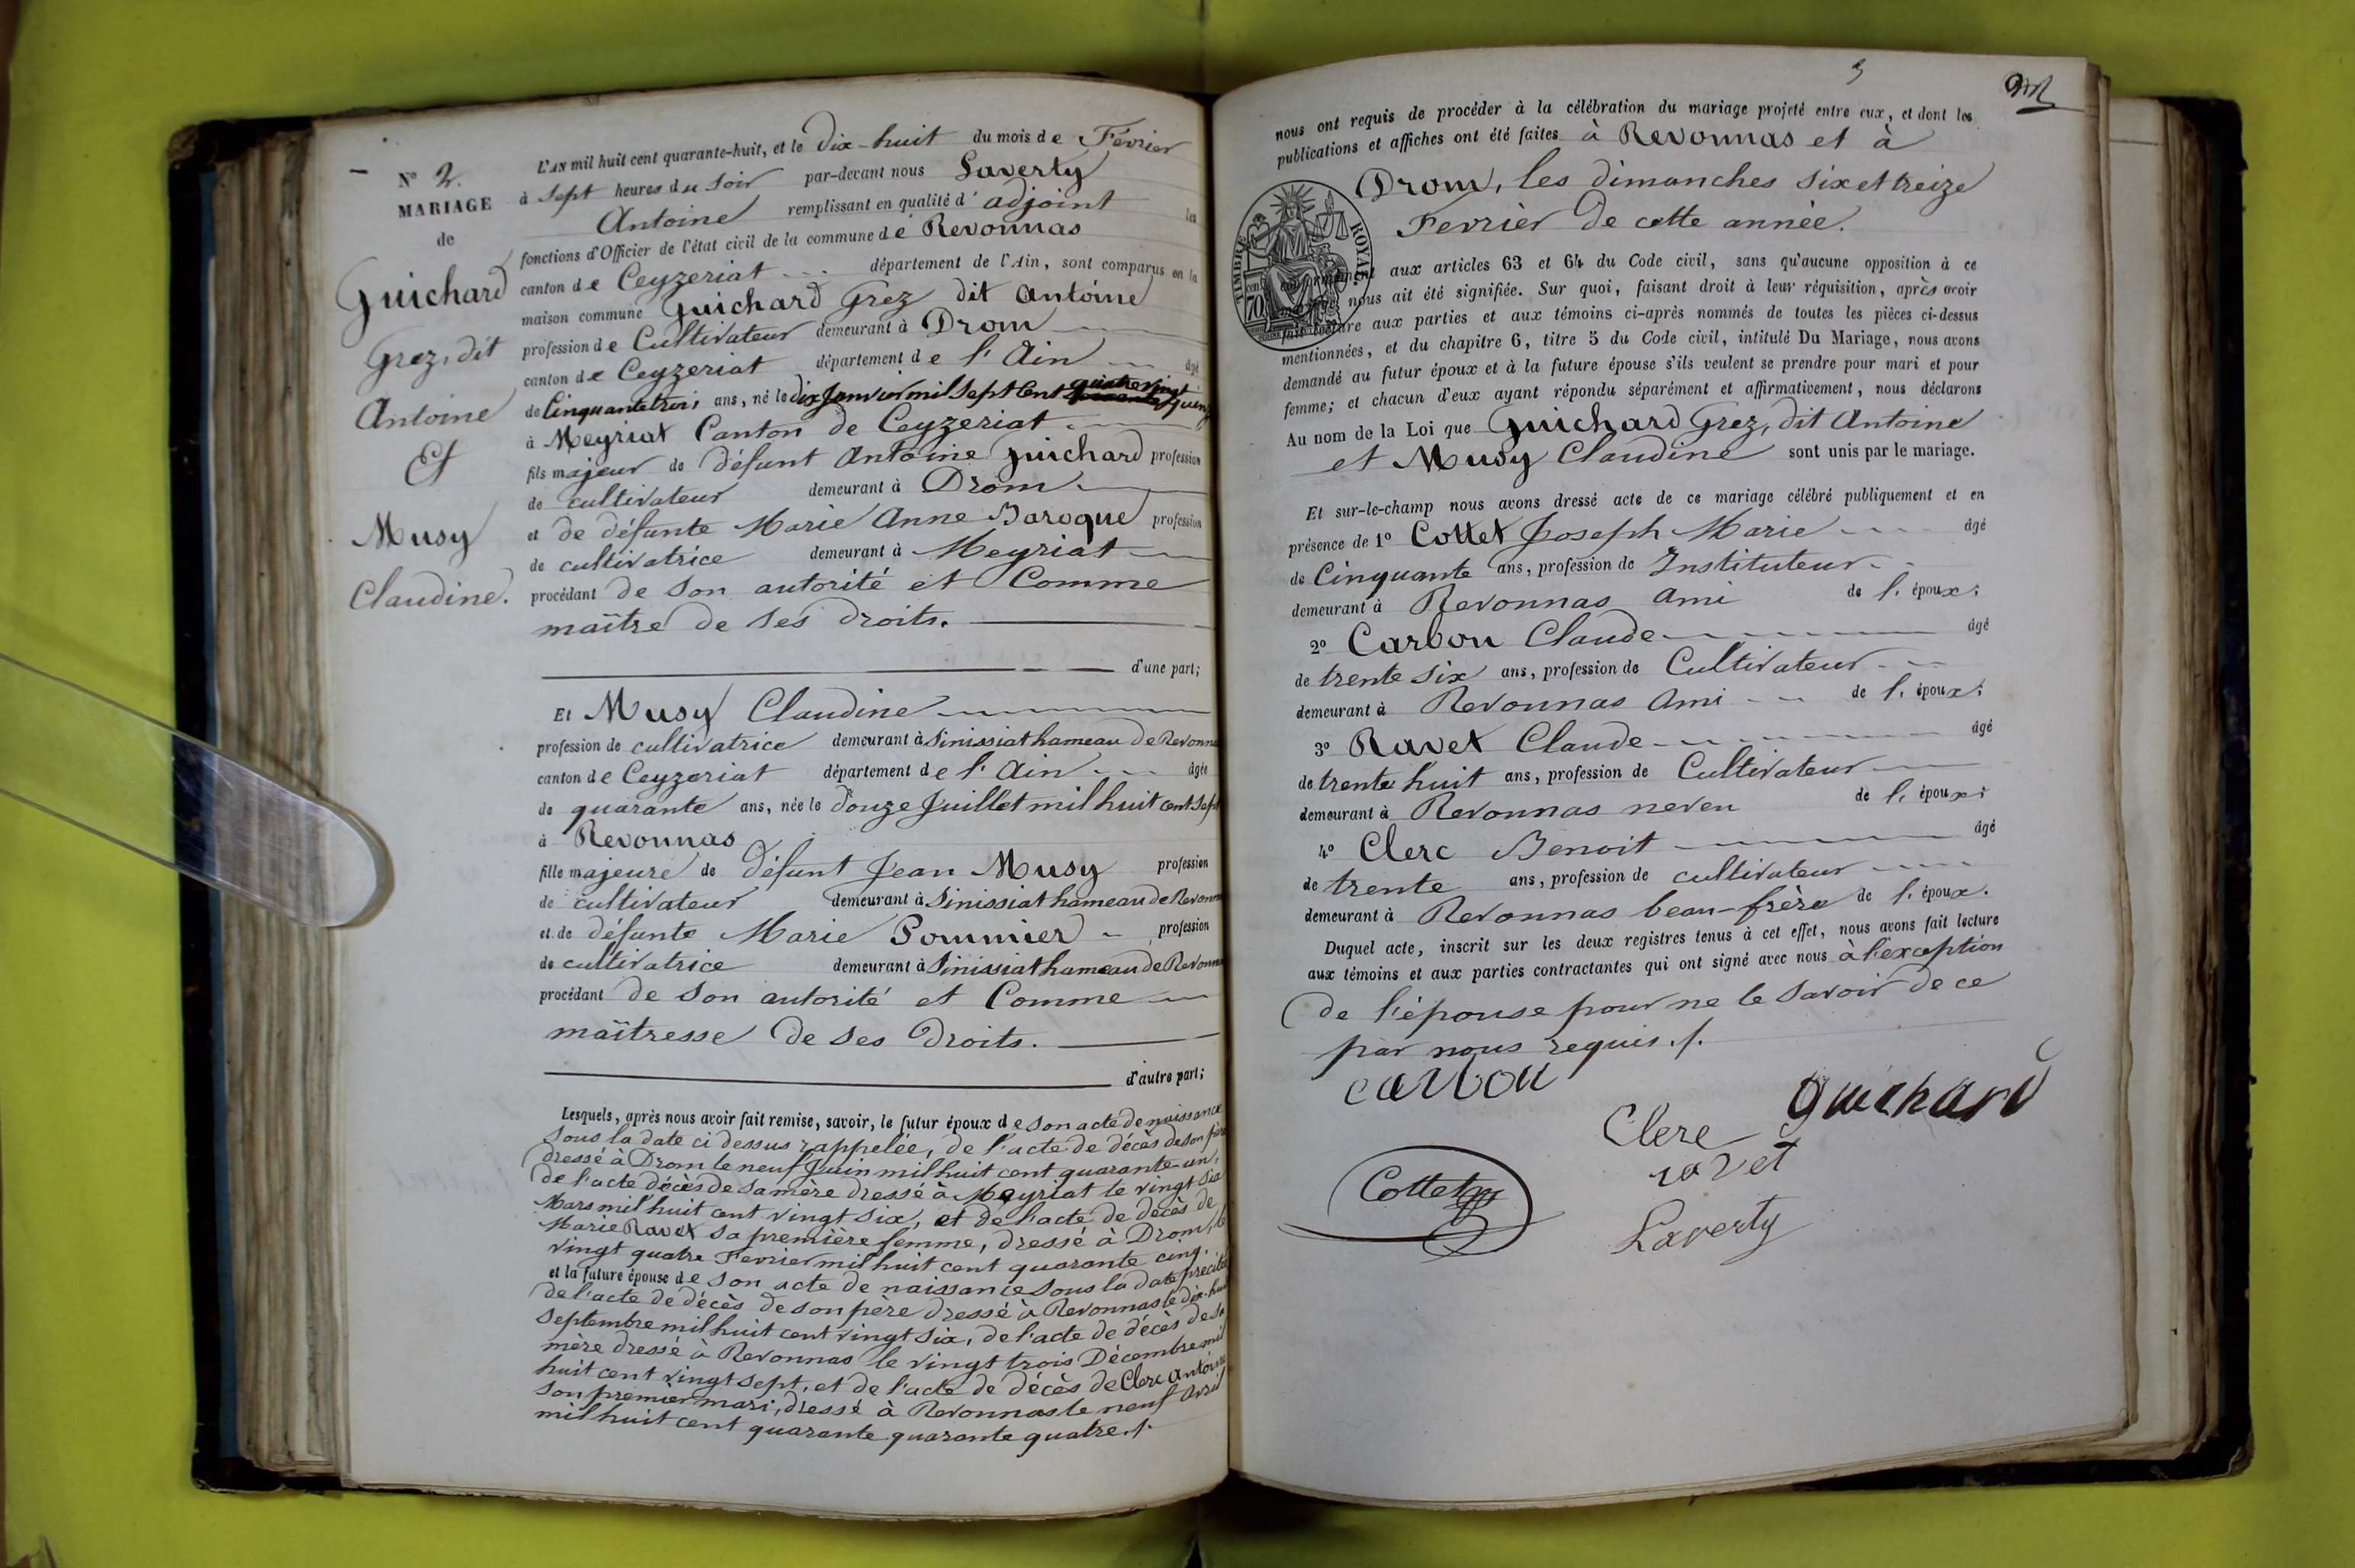 N° 2.
MARIAGE
de
Guichard
Grez, dit
Antoine
Et
Musy
Claudine.
L'AN mil huit cent quarante-huit, et le dix-huit du mois de Février
à sept heures du soir par-devant nous Laverty
Antoine remplissant en qualité d'adjoint les
fonctions d'Officier de l'état civil de la commune de Revonnas
canton de Ceyzeriat département de l'Ain, sont comparus en la
maison commune Guichard Grez dit Antoine
profession de Cultivateur demeurant à Drom
canton de Ceyzeriat département de l'Ain âgé
de Cinquante trois ans, né le dix Janvier mil sept Cent quatre vingt quinze
à Meyriat Canton de Ceyzeriat
fils majeur de défunt Antoine Guichard profession
de cultivateur demeurant à Drom
et de défunte Marie Anne Baroque profession
de cultivatrice demeurant à Meyriat
procédant de son autorité et Comme
maître de ses droits.
d'une part;
Et Musy Claudine
profession de cultivatrice demeurant à Sinissiat hameau de Revonnas
canton de Ceyzeriat département de l'Ain âgée
de quarante ans, née le douze Juillet mil huit cent sept
à Revonnas
fille majeure de défunt Jean Musy profession
de cultivateur demeurant à Sinissiat hameau de Revonnas
et de défunte Marie Pommier profession
de cultivatrice demeurant à Sinissiat hameau de Revonnas
procédant de son autorité et Comme
maîtresse de ses droits.
d'autre part;
Lesquels, après nous avoir fait remise, savoir, le futur époux de son acte de naissance
sous la date ci dessus rappelée, de l'acte de décès de son père
dressé à Drom le neuf Juin mil huit cent quarante-un,
de l'acte décès de sa mère dressé à Meyriat le vingt six
Mars mil huit cent vingt six, et de l'acte de décès de
Marie Ravet sa première femme, dressé à Drom, le
vingt quatre Fevrier mil huit cent quarante cinq.
et la future épouse de son acte de naissance sous la date précitée
de l'acte de décès de son père dressé à Revonnas le dix-huit
septembre mil huit cent vingt six, de l'acte de décès de sa
mère dressé à Revonnas le vingt trois Décembre mil
huit cent vingt sept, et de l'acte de décès de Clerc Antoine
son premier mari, dressé à Revonnas le neuf Avril
mil huit cent quarante quarante quatre./.
3
nous ont requis de procéder à la célébration du mariage projeté entre eux, et dont les
publications et affiches ont été faites à Revonnas et à
Drom, les dimanches six et treize
Fevrier de cette année.
TIMBRE ROYAL
70
conformément aux articles 63 et 64 du Code civil, sans qu'aucune opposition à ce
mariage nous ait été signifiée. Sur quoi, faisant droit à leur réquisition, après avoir
fait lecture aux parties et aux témoins ci-après nommés de toutes les pièces ci-dessus
mentionnées, et du chapitre 6, titre 5 du Code civil, intitulé Du Mariage, nous avons
demandé au futur époux et à la future épouse s'ils veulent se prendre pour mari et pour
femme; et chacun d'eux ayant répondu séparément et affirmativement, nous déclarons
Au nom de la Loi que Guichard Grez, dit Antoine
et Musy Claudine sont unis par le mariage.
Et sur-le-champ nous avons dressé acte de ce mariage célébré publiquement et en
présence de 1° Cottet Joseph Marie âgé
de Cinquante ans, profession de Instituteur
demeurant à Revonnas ami de l'époux;
2° Carbon Claude âgé
de trente six ans, profession de Cultivateur
demeurant à Revonnas ami de l'époux;
3° Ravet Claude âgé
de trente huit ans, profession de Cultivateur
demeurant à Revonnas neveu de l'époux;
4° Clerc Benoit âgé
de trente ans, profession de cultivateur
demeurant à Revonnas beau-frère de l'époux.
Duquel acte, inscrit sur les deux registres tenus à cet effet, nous avons fait lecture
aux témoins et aux parties contractantes qui ont signé avec nous à l'exception
de l'épouse pour ne le savoir de ce
par nous requis./.
carbon
Guichard
Clerc
ravet
Cottet
Laverty